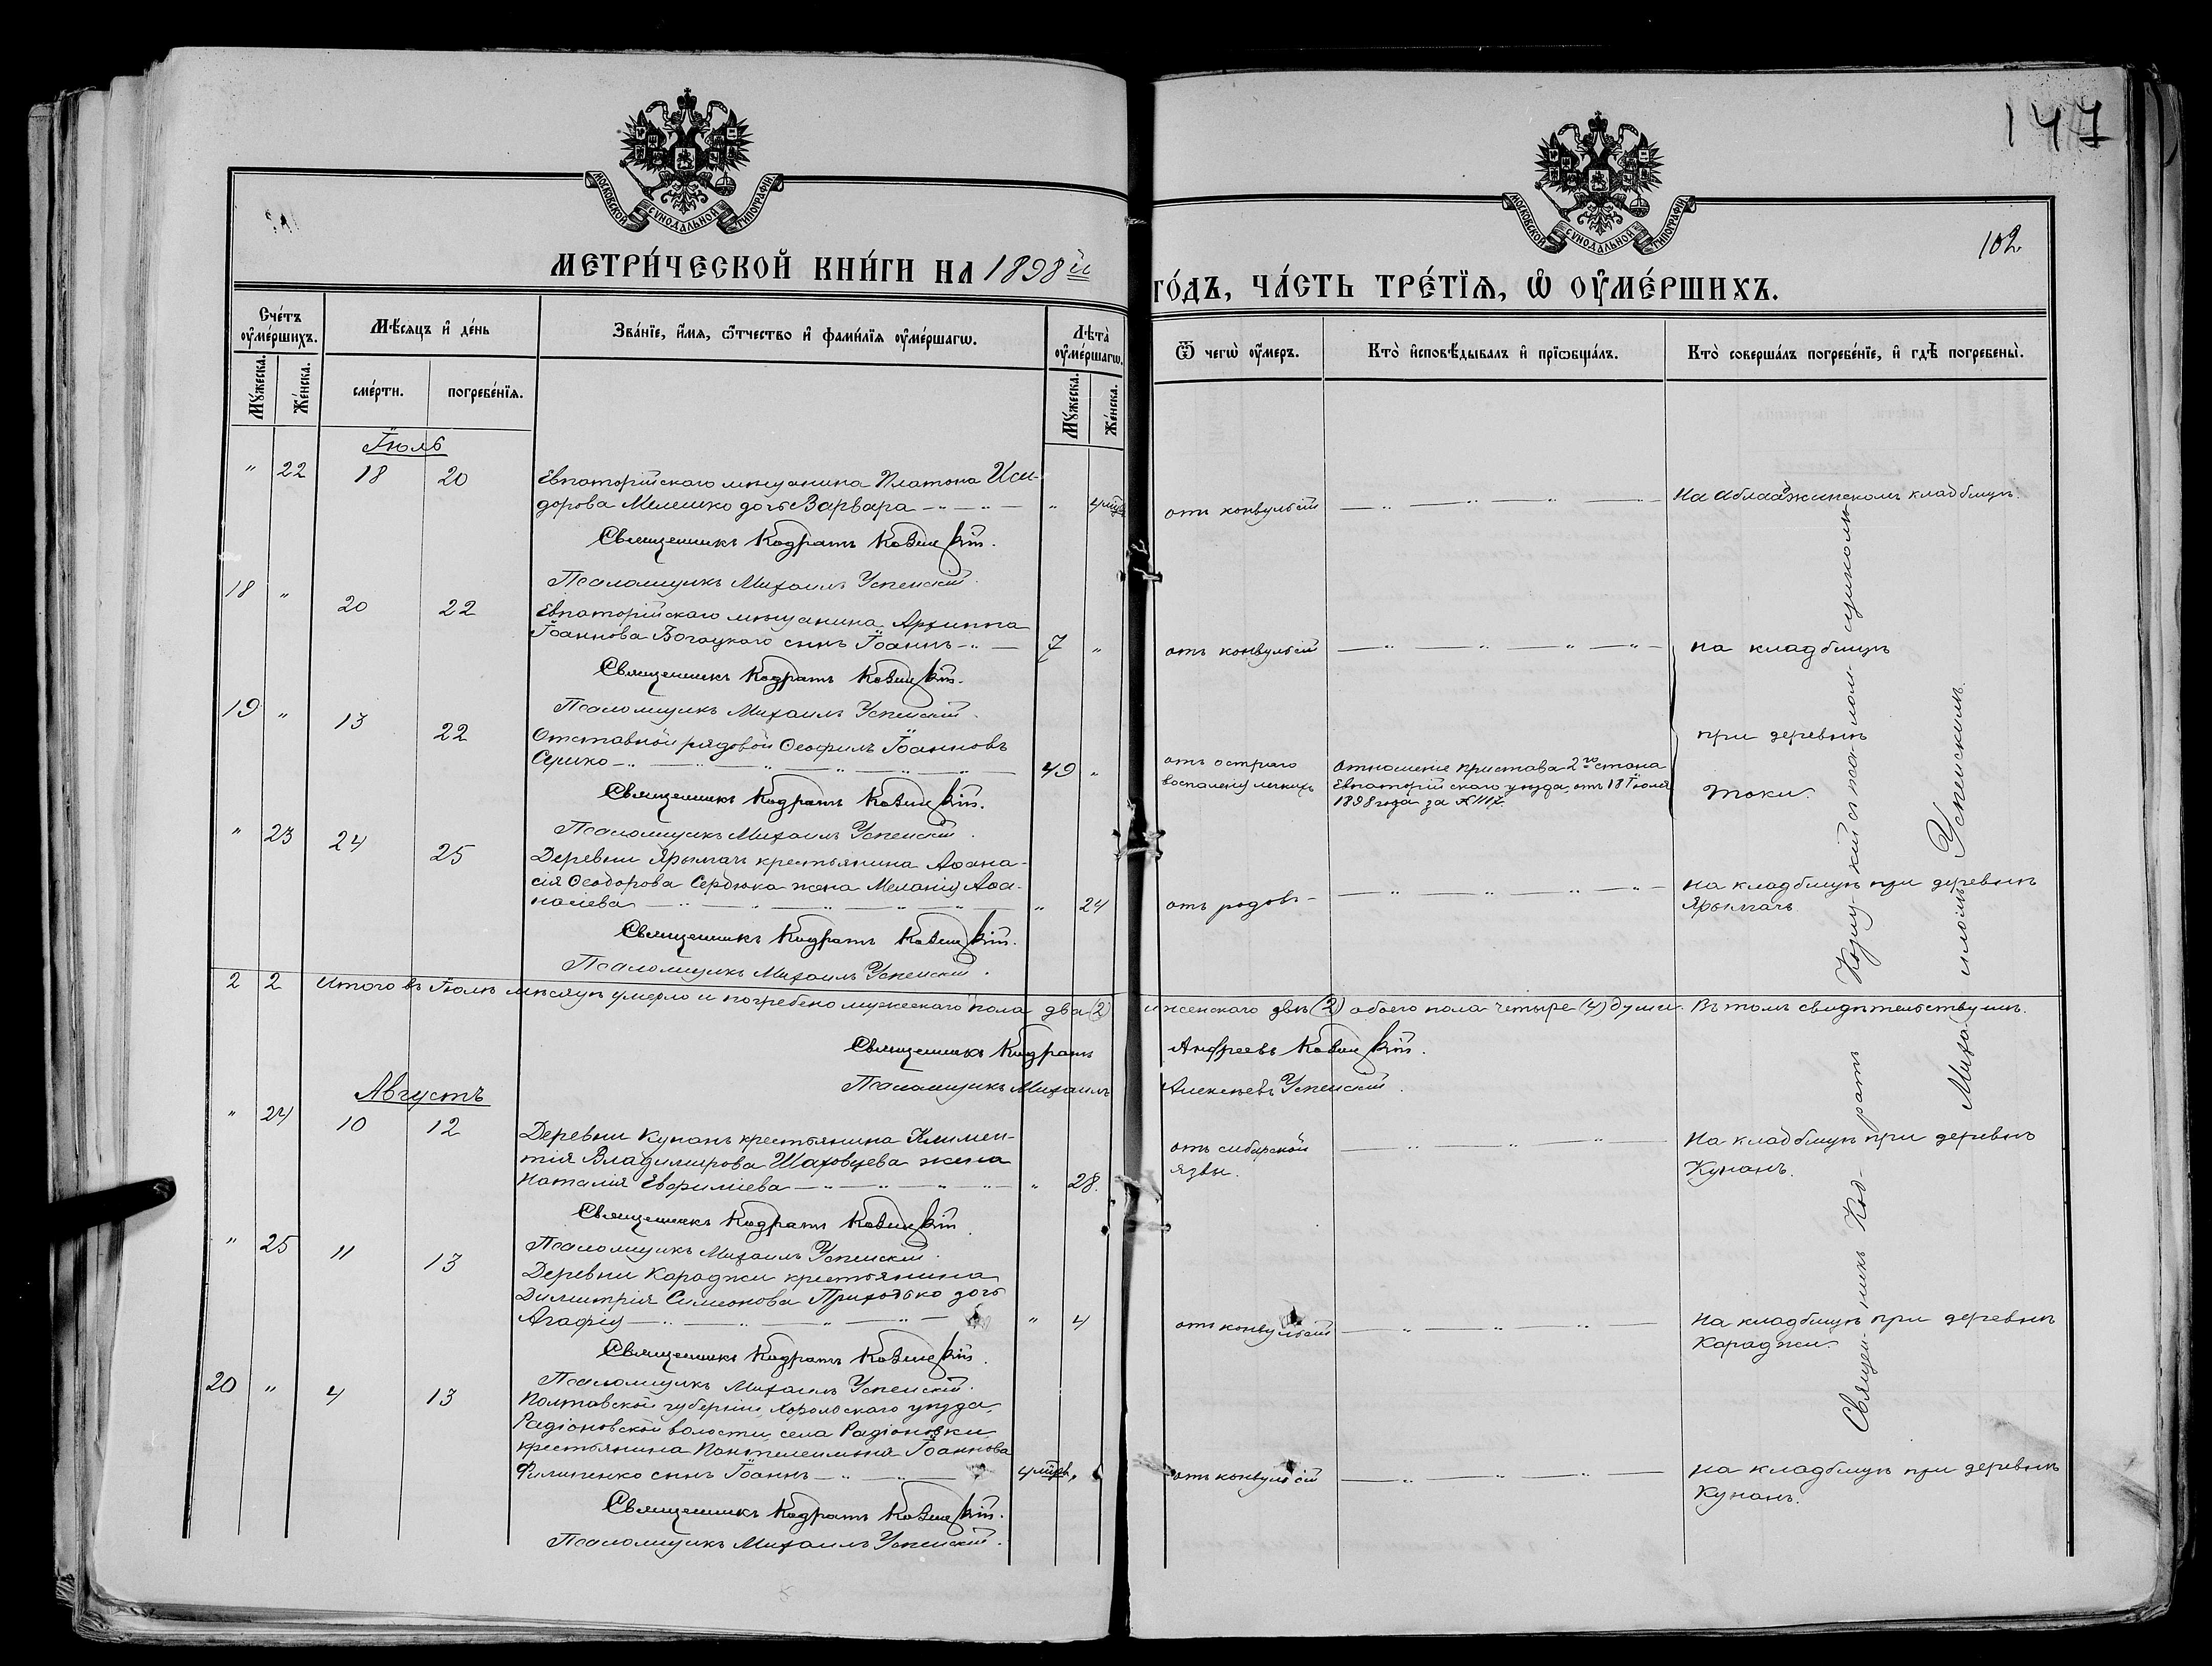 147
МОСКОВСКОЙ СУНОДАЛЬНОЙ ТИПОГРАФІИ.
МОСКОВСКОЙ СУНОДАЛЬНОЙ ТИПОГРАФІИ.
102.
МЕТРИ́ЧЕСКОЙ КНИ́ГИ НА 1898й
ГО́ДЪ, ЧА́СТЬ ТРЕ́ТІѦ, Ѡ ОУМЕ́РШИХЪ.
Счетъ оумершихъ.
Мѣсяцъ и день
Званіе, имя, ѿтчество и фамилія оумершагѡ.
Лѣта оумершагѡ.
Ѿ чегѡ оумеръ.
Кто исповѣдывалъ и пріѡбщалъ.
Кто совершалъ погребеніе, и гдѣ погребены.
Мужеска.
Женска.
смерти.
погребенія.
Мужеска.
Женска.
Іюль
" 22 18 20 Евпаторійскаго мѣщанина Платона Иси-
дорова Мелешко дочь Варвара " 4 мѣс. отъ конвульсій На Аблаажинскомъ кладбищѣ.
Священникъ Кодратъ
Псаломщикъ Михаилъ Успенскій.
18 " 20 22 Евпаторійскаго мѣщанина Архиппа
Іоаннова Богацкаго сынъ Іоаннъ 7 " отъ конвульсій на кладбищѣ
Священникъ Кодратъ
Псаломщикъ Михаилъ Успенскій.
19 " 13 22 Отставной рядовой Ѳеофилъ Іоанновъ при деревнѣ
Серико 49 " отъ остраго воспаленія легкихъ Отношеніе Пристава 2го стана
Евпаторійскаго уѣзда, отъ 18 Іюля
1898 года за № 1117. Токи.
Священникъ Кодратъ
Псаломщикъ Михаилъ Успенскій.
" 23 24 25 Деревни Ярылгачъ крестьянина Аѳана-
сія Ѳеодорова Сердюка жена Меланія Аѳа-
насіева " 24 отъ родовъ На кладбищѣ при деревнѣ
Ярылгачъ
Священникъ Кодратъ
Псаломщикъ Михаилъ Успенскій.
2 2 Итого въ Іюлѣ мѣсяцѣ умерло и погребено мужескаго пола два (2) и женскаго двѣ (2) обоего пола четыре (4) души. Въ томъ свидѣтельствуемъ.
Священникъ Кодратъ Андреевъ
Псаломщикъ Михаилъ Алексѣевъ Успенскій.
Августъ
" 24 10 12 Деревни Кунанъ крестьянина Климен-
тія Владимирова Шаховцева жена
Наталія Евфиміева " 28. отъ сибирской
язвы. На кладбищѣ при деревнѣ
Кунанъ.
Священникъ Кодратъ
Псаломщикъ Михаилъ Успенскій.
" 25 11 13 Деревни Караджи крестьянина
Димитрія Симеонова Приходько дочь
Агафія " 4 отъ конвульсій На кладбищѣ при деревнѣ
Караджи.
Священникъ Кодратъ
Псаломщикъ Михаилъ Успенскій.
20 " 4 13 Полтавской губерніи, Хорольскаго уѣзда,
Радіоновской волости, села Радіоновки
крестьянина Пантелеимона Іоаннова
Филипенко сынъ Іоаннъ 4 мѣс. " отъ конвульсій На кладбищѣ при деревнѣ
Кунанъ.
Священникъ Кодратъ
Псаломщикъ Михаилъ Успенскій.
Священникъ Кодратъ съ псаломщикомъ
Михаиломъ Успенскимъ.